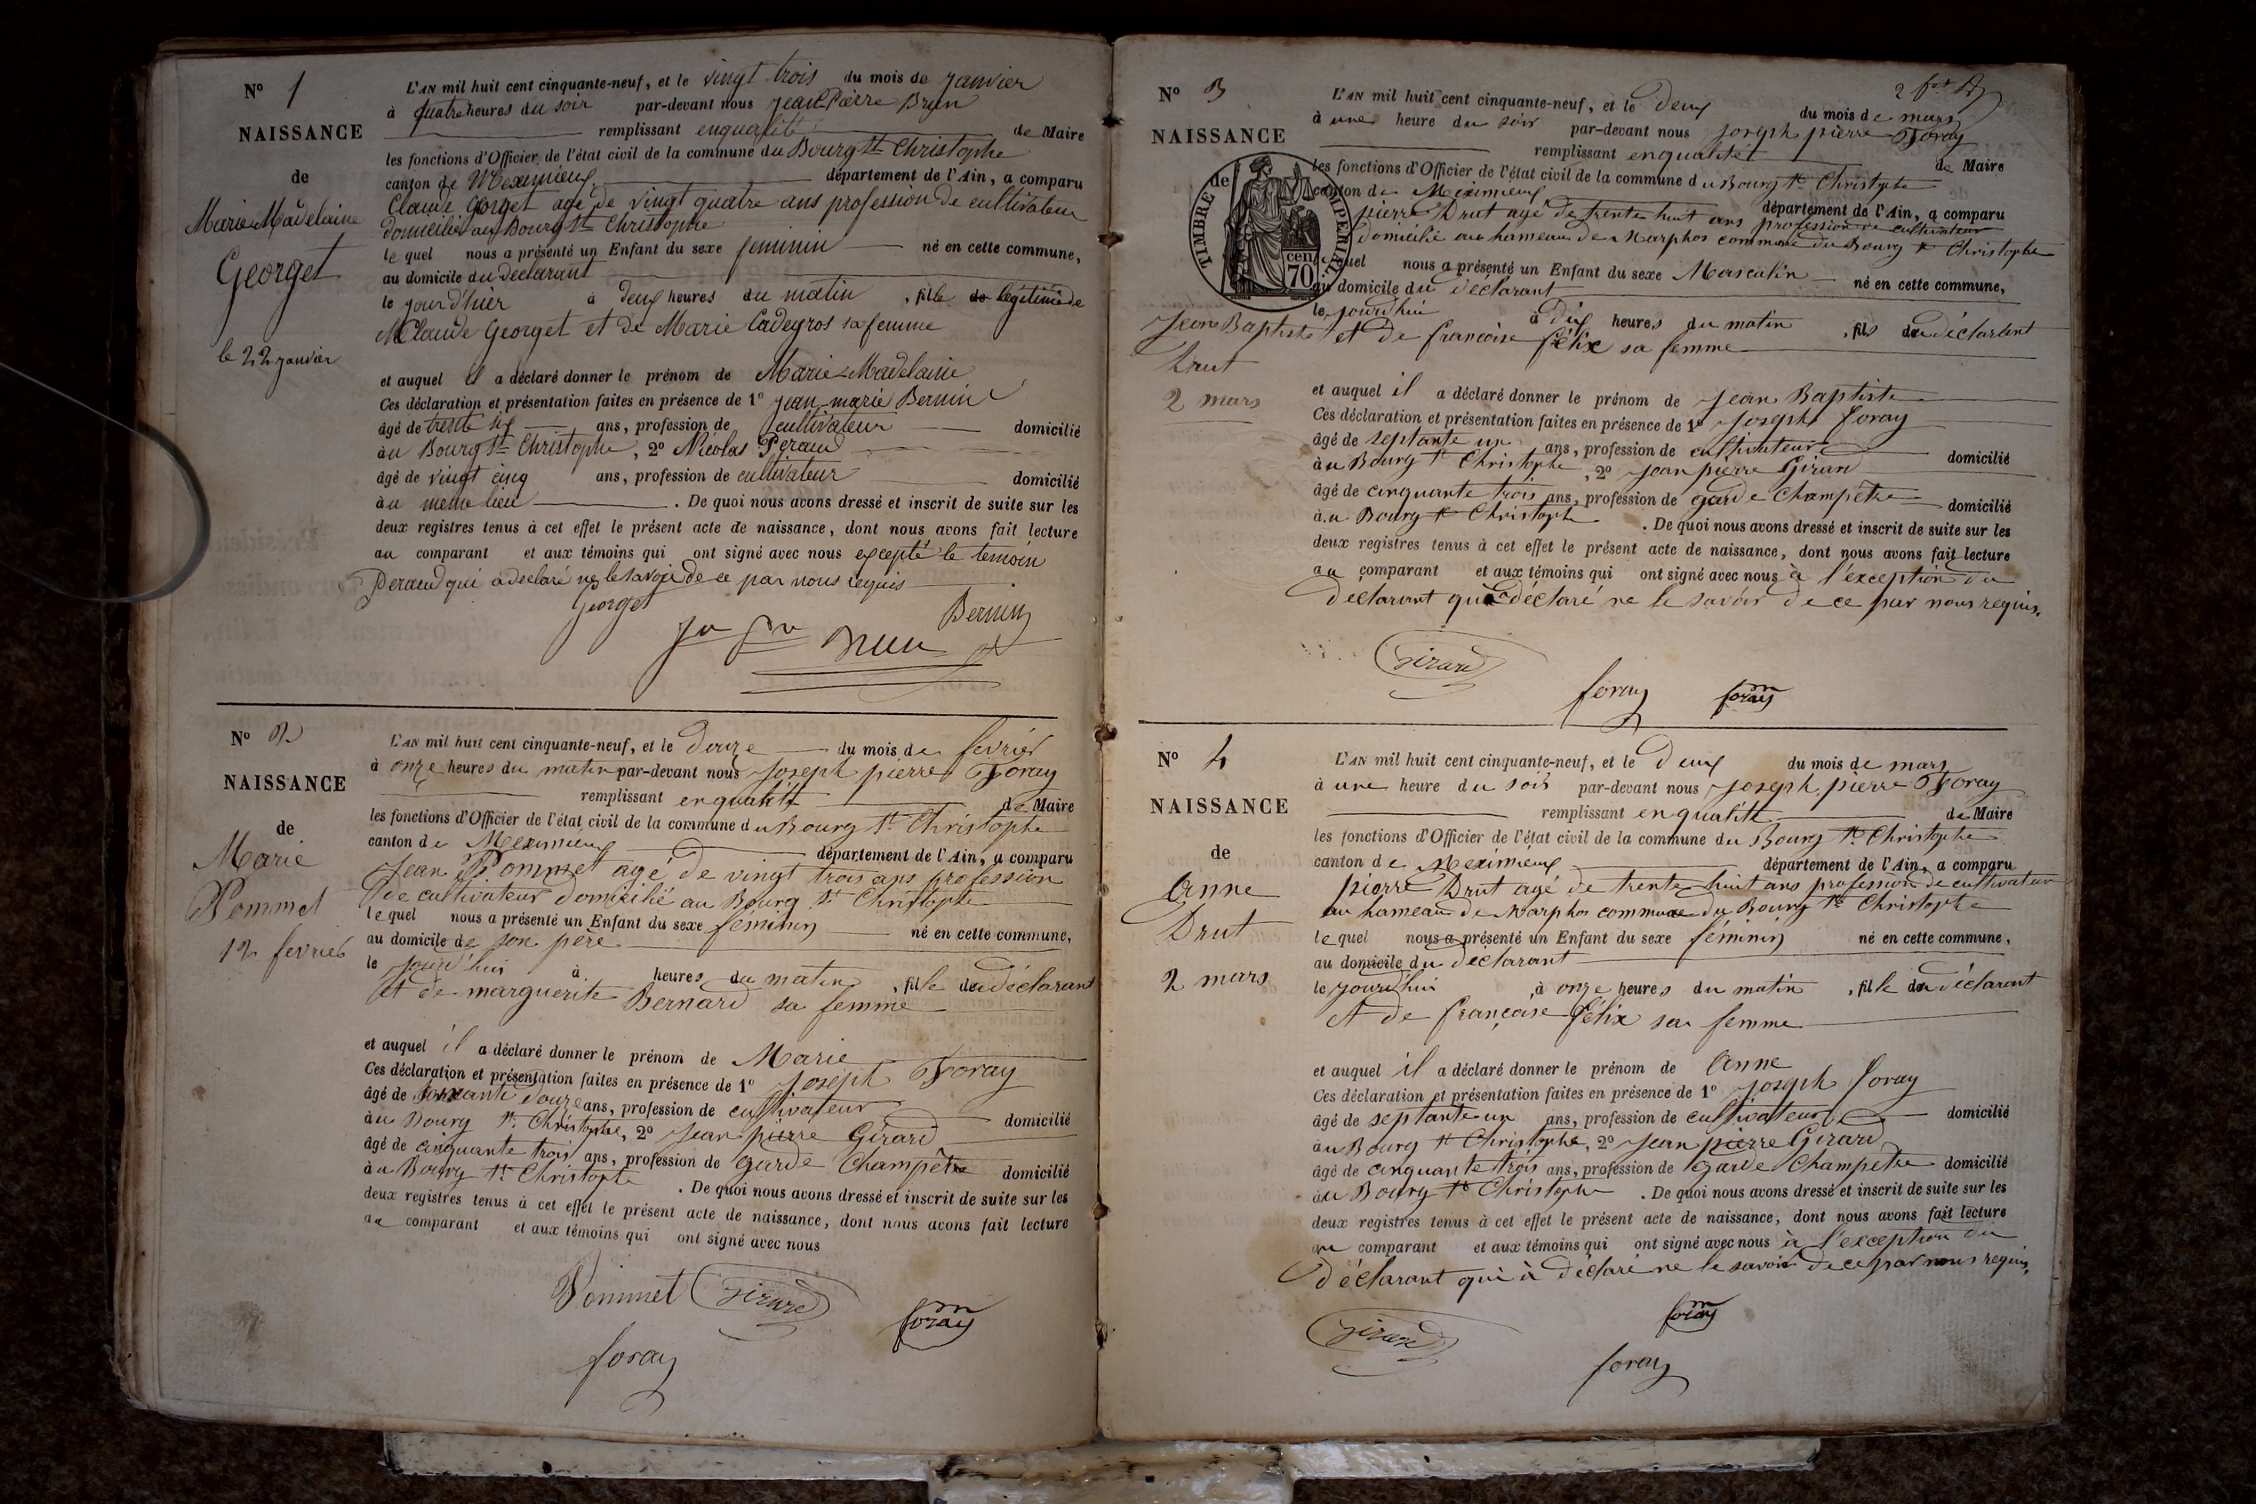 N° 1
NAISSANCE
de
Marie Madelaine
Georget
le 22 janvier
L'AN mil huit cent cinquante-neuf, et le vingt trois du mois de janvier
à quatre heures du soir par-devant nous Jean Pierre Brun
remplissant enqualité de Maire
les fonctions d'Officier de l'état civil de la commune du Bourg St Christophe
canton de Meximieux département de l'Ain, a comparu
Claude Gorget agé de vingt quatre ans profession de cultivateur
domicilié au Bourg St Christophe
le quel nous a présenté un Enfant du sexe feminin né en cette commune,
au domicile du declarant
le jour d'hier à deux heures du matin , fille de legitime de
Claude Georget et de Marie Cadeyros sa femme
et auquel il a déclaré donner le prénom de Marie Madelaine
Ces déclaration et présentation faites en présence de 1° jean marie Bernin
âgé de trente six ans, profession de cultivateur domicilié
au Bourg St Christophe, 2° Nicolas Peraud
âgé de vingt cinq ans, profession de cultivateur domicilié
au meme lieu . De quoi nous avons dressé et inscrit de suite sur les
deux registres tenus à cet effet le présent acte de naissance, dont nous avons fait lecture
au comparant et aux témoins qui ont signé avec nous excepté le temoin
Peraud qui a declaré ne le savoir de ce par nous requis
Georget
Bernin
Brun
N° 2
NAISSANCE
de
Marie
Pommet
12 fevrier
L'AN mil huit cent cinquante-neuf, et le douze du mois de fevrier
à onze heures du matin par-devant nous Joseph pierre Foray
remplissant enqualité de Maire
les fonctions d'Officier de l'état civil de la commune du Bourg St Christophe
canton de Meximieux département de l'Ain, a comparu
Jean Pommet agé de vingt trois ans profession
de cultivateur domicilié au Bourg St Christophe
le quel nous a présenté un Enfant du sexe féminin né en cette commune,
au domicile de son père
le jourd'hui à heures du matin , fille du déclarant
et de marguerite Bernard sa femme
et auquel il a déclaré donner le prénom de Marie
Ces déclaration et présentation faites en présence de 1° Joseph Foray
âgé de soixante douze ans, profession de cultivateur
au Bourg St Christophe, 2° Jean pierre Girard domicilié
âgé de cinquante trois ans, profession de garde Champêtre domicilié
au Bourg St Christophe . De quoi nous avons dressé et inscrit de suite sur les
deux registres tenus à cet effet le présent acte de naissance, dont nous avons fait lecture
au comparant et aux témoins qui ont signé avec nous
Pommet Girard
foray
foray
N° 3
NAISSANCE
de
TIMBRE IMPERIAL
70 cen.
Jean Baptiste
Drut
2 mars
L'AN mil huit cent cinquante-neuf, et le deux du mois de mars
à une heure du soir par-devant nous Joseph pierre Foray
remplissant enqualité de Maire
les fonctions d'Officier de l'état civil de la commune du Bourg St Christophe
canton de Meximieux département de l'Ain, a comparu
pierre Drut agé de trente huit ans profession de cultivateur
domicilié au hameau de Marphos commune du Bourg St Christophe
le quel nous a présenté un Enfant du sexe Masculin né en cette commune,
au domicile du déclarant
le jourd'hui à dix heures du matin , fils du déclarant
et de francoise félix sa femme
et auquel il a déclaré donner le prénom de Jean Baptiste
Ces déclaration et présentation faites en présence de 1° Joseph foray
âgé de septante un ans, profession de cultivateur domicilié
au Bourg St Christophe, 2° Jean pierre Girard
âgé de cinquante trois ans, profession de garde Champêtre domicilié
au Bourg St Christophe . De quoi nous avons dressé et inscrit de suite sur les
deux registres tenus à cet effet le présent acte de naissance, dont nous avons fait lecture
au comparant et aux témoins qui ont signé avec nous à l'exception du
declarant qui a déclaré ne le savoir de ce par nous requis.
Girard
foray foray
N° 4
NAISSANCE
de
Anne
Drut
2 mars
L'AN mil huit cent cinquante-neuf, et le deux du mois de mars
à une heure du soir par-devant nous Joseph pierre Foray
remplissant enqualité de Maire
les fonctions d'Officier de l'état civil de la commune du Bourg St Christophe
canton de Meximieux département de l'Ain, a comparu
pierre Drut agé de trente huit ans profession de cultivateur
au hameau de Marphos commune du Bourg St Christophe
le quel nous a présenté un Enfant du sexe féminin né en cette commune,
au domicile du déclarant
le jourd'hui à onze heures du matin , fille du déclarant
et de françoise félix sa femme
et auquel il a déclaré donner le prénom de Anne
Ces déclaration et présentation faites en présence de 1° Joseph foray
âgé de septante un ans, profession de cultivateur domicilié
au Bourg St Christophe, 2° Jean pierre Girard
âgé de cinquante trois ans, profession de garde Champetre domicilié
au Bourg St Christophe . De quoi nous avons dressé et inscrit de suite sur les
deux registres tenus à cet effet le présent acte de naissance, dont nous avons fait lecture
au comparant et aux témoins qui ont signé avec nous à l'exception du
déclarant qui à déclaré ne le savoir de ce par nous requis.
Girard
foray
foray